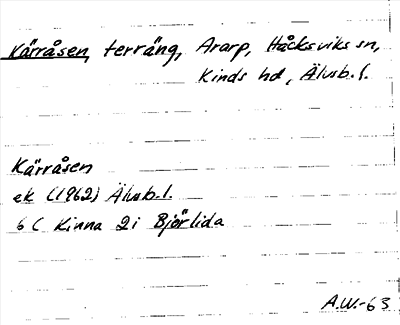 Kärråsen, terräng, Ararp, Håcksviks sn,
Kinds hd, Älvsb. l.
Kärråsen
ek (1962) Älvsb. l.
6 C Kinna 2i Björlida
A.W.-63